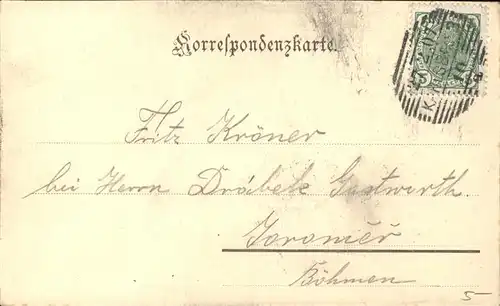 Korrespondenzkarte.
5
Fritz Kröner
bei Herrn Drábek Gastwirth
Jaroměř
Böhmen
5